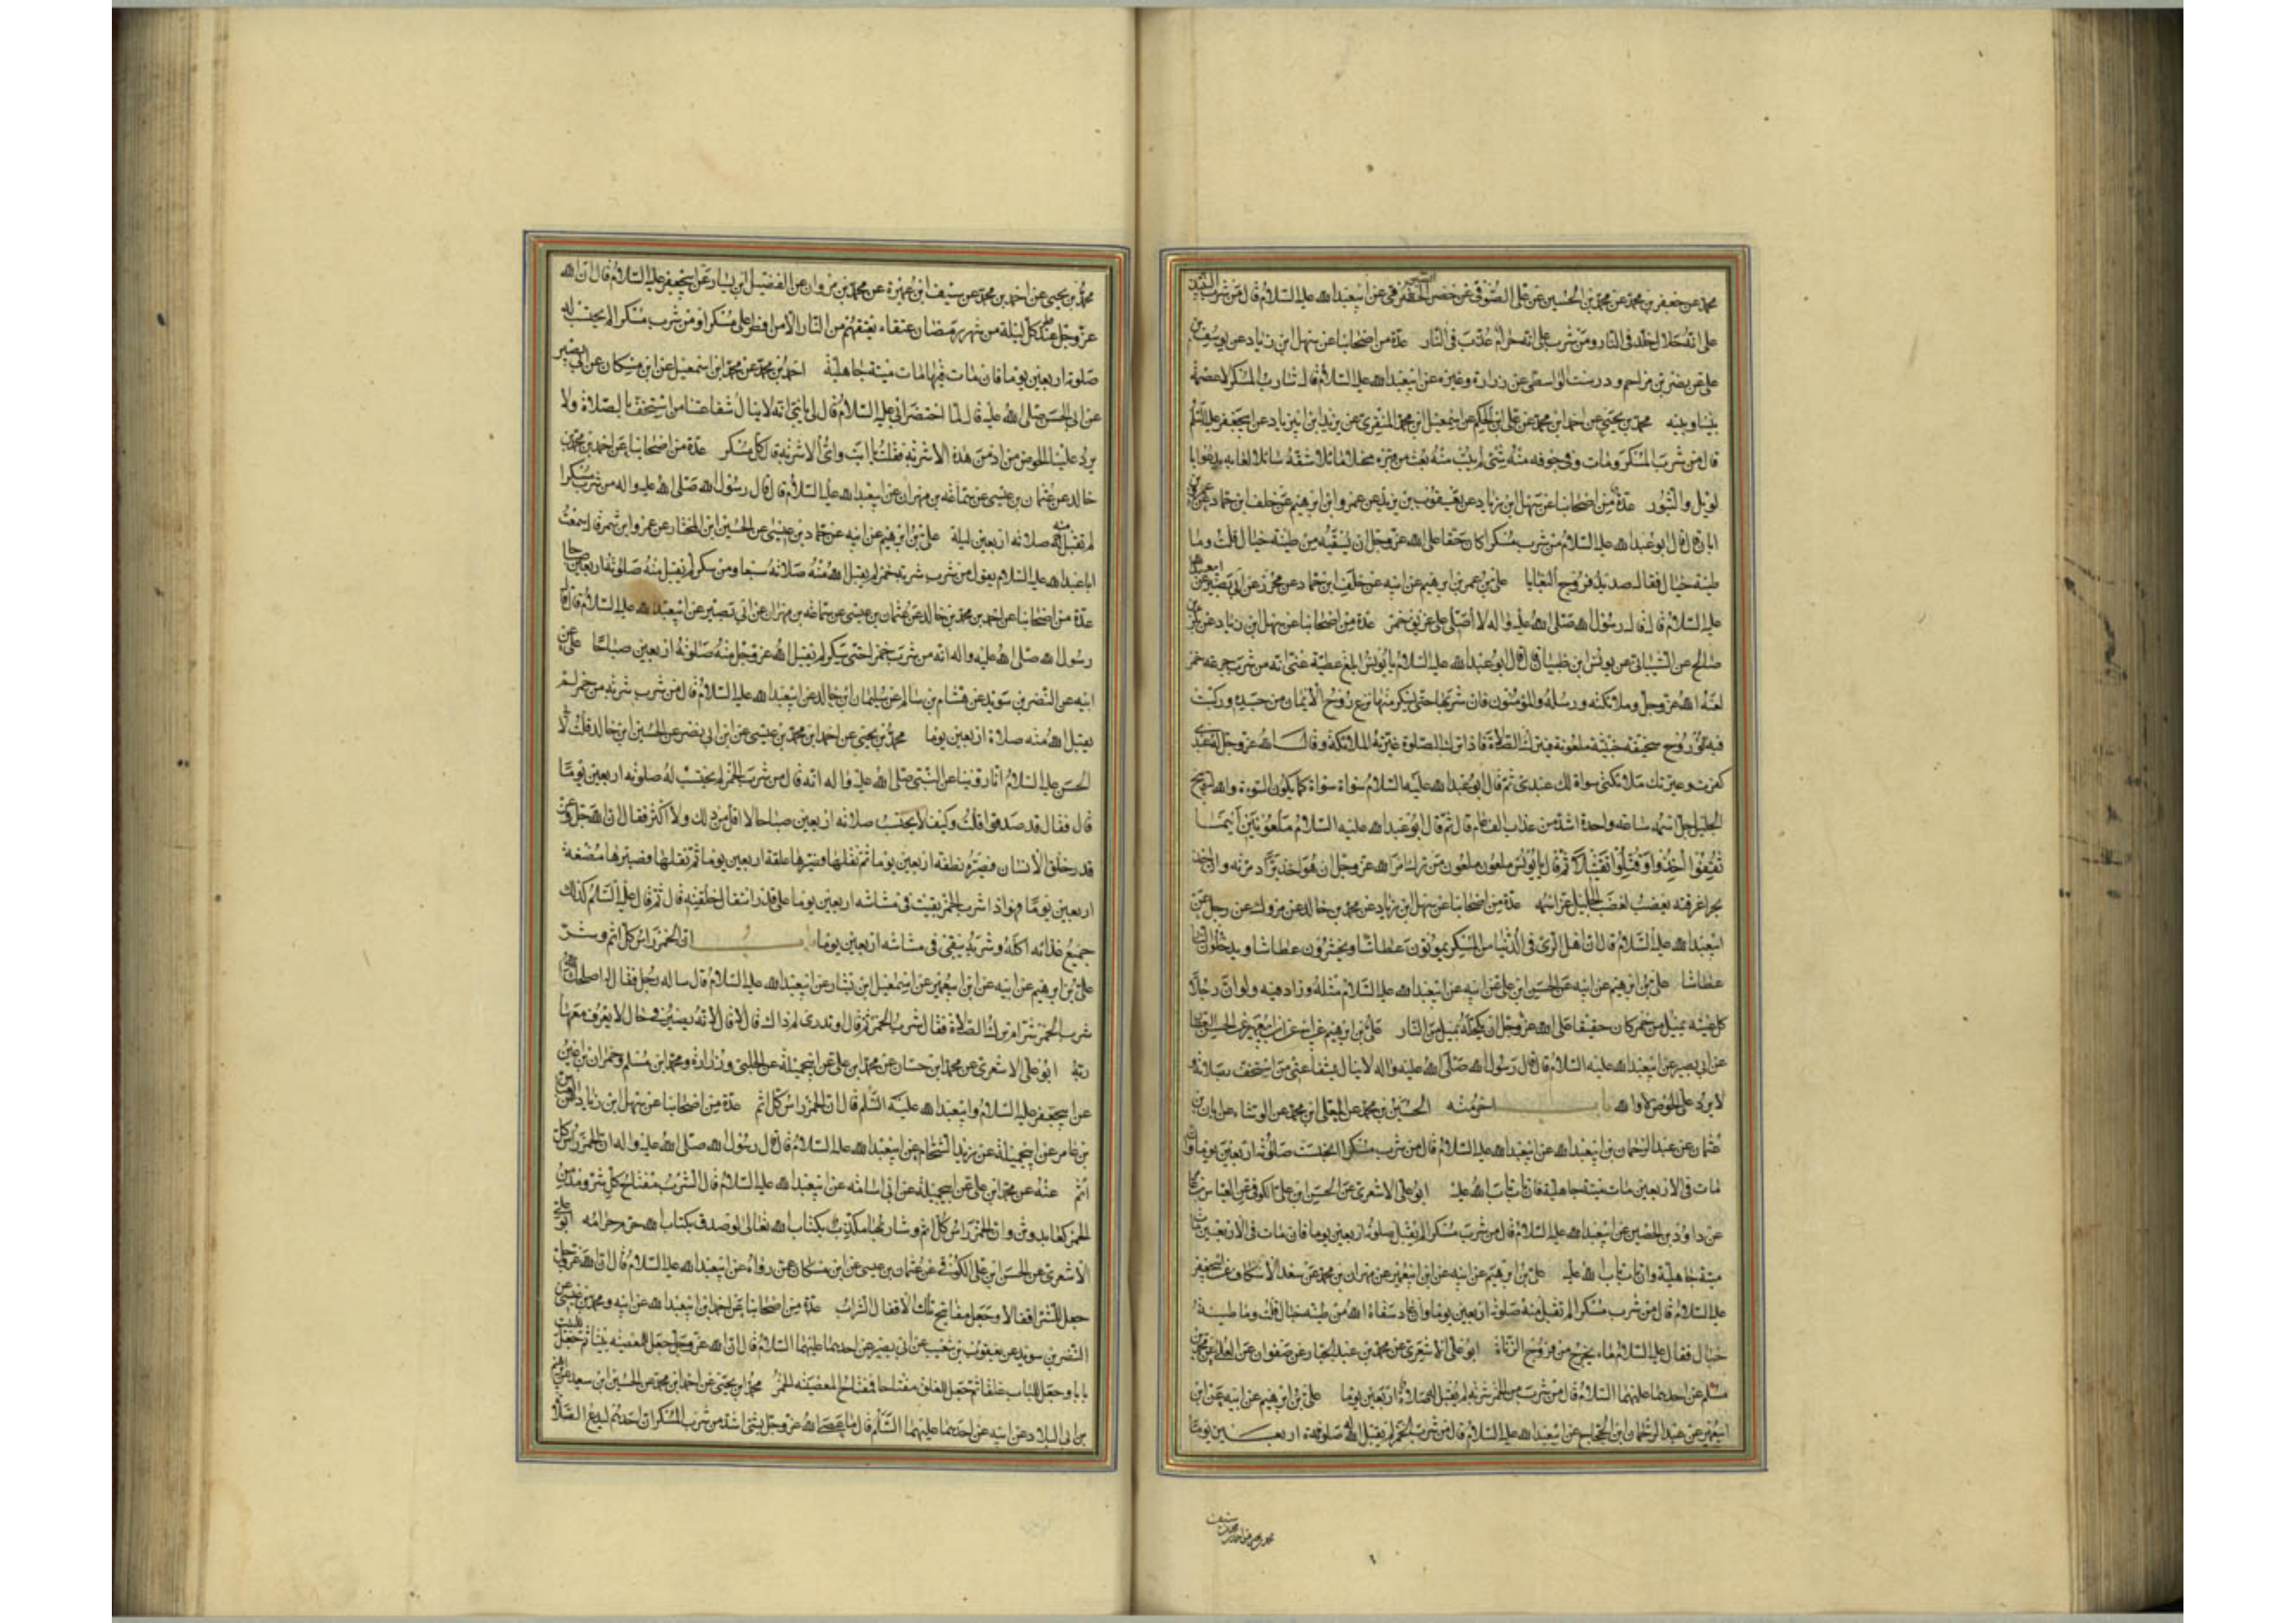 محمد عن جعفر بن محمد عن محمد بن الحسين عن علي الصوفي عن خضر الصيرفي عن ابيعبد الله عليه السلام قال من شرب النبيذ
على انه حلال خلد في النار ومن شرب على انه حرام عذب في النار عدة من اصحابنا عن سهل ابن زياد عن يوسف بن
علي عن نضر بن مزاحم ودرست الواسطي عن زرارة وغيره عن ابيعبد الله عليه السلام قال شارب المسكر لا عصمة
بيننا وبينه محمد بن يحيى عن احمد ابن محمد عن علي ابن الحكم عن اسمعيل ابن محمد المنقري عن يزيد ابن ابي زياد عن ابيجعفر عليه السلم
قال من شرب المسكر ومات وفي جوفه منه شئ لم يتب منه بعث من قبره مخبلا مائلا شقه سائلا لعابه يدعو بالويل
والثبور عدة من اصحابنا عن سهل ابن زياد عن يعقوب بن يزيد عن عمرو ابن ابرهيم عن خلف ابن حماد عن عمر بن
ابان قال قال ابو عبد الله عليه السلام من شرب مسكرا كان حقا على الله عز وجل ان يسقيه من طينة خبال قلت وما
طينة خبال فقال صديد فروج البغايا علي بن ابرهيم عن ابيه عن خلف ابن حماد عن محرز عن ابي بصير عن ابيعبد الله
عليه السلام قال قال رسول الله صلى الله عليه واله لا اصلي على غريق خمر عدة من اصحابنا عن سهل ابن زياد عن بكر بن
صالح عن الشيباني عن يونس ابن ظبيان قال قال ابو عبد الله عليه السلام يا يونس ابلغ عطية عني انه من شرب جرعة خمر
لعنه الله عز وجل وملائكته ورسله والمؤمنون فان شربها حتى يسكر منها نزع روح الايمان من جسده وركبت
فيه روح سخيفة خبيثة ملعونة فيترك الصلاة فاذا ترك الصلوة عيرته الملائكة وقال الله عز وجل له عبدي
كفرت وعيرتك ملائكتي سواة لك عبدي ثم قال ابو عبد الله عليه السلام سواة سواة كما يكون السوءة والله لتوبيخ
الجليل جل اسمه ساعة واحدة اشد من عذاب الف عام قال ثم قال ابو عبد الله عليه السلام ملعونين اينما
ثقفوا اخذوا وقتلوا تقتيلا ثم قال يا يونس ملعون ملعون من ترك امر الله عز وجل ان هو اخذ برا دمرته وان اخذ
بحرا غرقته بغضب لغضب الجليل عز اسمه عدة من اصحابنا عن سهل ابن زياد عن محمد بن خالد عن مروك عن رجل عن
ابيعبد الله عليه السلام قال ان اهل الري في الدنيا من المسكر يموتون عطاشا ويحشرون عطاشا ويدخلون النار
عطاشا علي بن ابرهيم عن ابيه عن الحسين ابن علي عن ابيه عن ابيعبد الله عليه السلام مثله وزاد فيه ولو ان رجلا
كحل عينه بميل من خمر كان حقيقا على الله عز وجل ان يكحله بميل من النار علي بن ابرهيم عن ابيه عن ابن ابيعمير عن
عن ابي بصير عن ابيعبد الله عليه السلام قال قال رسول الله صلى الله عليه واله لا ينال شفاعتي من استخف بصلاته و
لا يرد علي الحوض لا والله باب اخر منه الحسين بن محمد عن المعلى ابن محمد عن الوشاء عن ابان بن
عثمان عن عبد الرحمان بن ابيعبد الله عن ابيعبد الله عليه السلام قال من شرب مسكرا انحبست صلوته اربعين يوما وان
مات في الاربعين مات ميتة جاهلية فان تاب تاب الله عليه ابو علي الاشعري عن الحسن ابن علي الكوفي عن العباس بن عامر
عن داود بن الحصين عن ابيعبد الله عليه السلام قال من شرب مسكرا لم يقبل صلوته اربعين يوما فان مات في الاربعين مات
ميتة جاهلية وان تاب تاب الله عليه علي بن ابرهيم عن ابيه عن ابن ابيعمير عن مهران بن محمد عن سعد الاسكاف عن ابيجعفر
عليه السلام قال من شرب مسكرا لم تقبل منه صلوته اربعين يوما وان عاد سقاه الله من طينة خبال قلت وما طينة
خبال فقال عليه السلام ماء يخرج من فروج الزناة ابو علي الاشعري عن محمد بن عبد الجبار عن صفوان عن العلا عن محمد بن
مسلم عن احدهما عليهما السلام قال من شرب من الخمر شربة لم يقبل له صلاة اربعين يوما علي بن ابرهيم عن ابيه عن ابن
ابيعمير عن عبد الرحمان ابن الحجاج عن ابيعبد الله عليه السلام قال من شرب الخمر لم يقبل الله صلوته اربعين يوما
محمد بن يحيى عن احمد بن محمد عن سيف
محمد بن يحيى عن احمد بن محمد عن سيف ابن عميرة عن محمد بن مروان عن الفضيل ابن يسار عن ابيجعفر عليه السلام قال ان الله
عز وجل عند كل ليلة من شهر رمضان عتقاء يعتقهم من النار الا من افطر على مسكر او من شرب مسكرا لم يحتسب له
صلوته اربعين يوما فان مات فيها مات ميتة جاهلية احمد بن محمد عن محمد ابن اسمعيل عن ابن مسكان عن ابي بصير
عن ابي الحسن صلى الله عليه قال لما احتضر ابي عليه السلام قال لي يا بني انه لا ينال شفاعتنا من استخف بالصلاة ولا
يرد علينا الحوض من ادمن هذه الاشربة فقلت يا ابت واي الاشربة قال كل مسكر عدة من اصحابنا عن احمد بن محمد بن
خالد عن عثمان بن عيسى عن سماعة بن مهران عن ابيعبد الله عليه السلام قال قال رسول الله صلى الله عليه واله من شرب مسكرا
لم تقبل منه صلاته اربعين ليلة علي بن ابرهيم عن ابيه عن حماد بن عيسى عن الحسين ابن المختار عن عمرو ابن شمر قال سمعت
ابا عبد الله عليه السلام يقول من شرب شربة خمر لم يقبل الله منه صلاته سبعا ومن سكر لم تقبل منه صلوته اربعين صباحا
عدة من اصحابنا عن احمد بن محمد بن خالد عن عثمان بن عيسى عن سماعة بن مهران عن ابي بصير عن ابيعبد الله عليه السلام قال قال
رسول الله صلى الله عليه واله انه من شرب خمرا حتى يسكر لم تقبل الله عز وجل منه صلوته اربعين صباحا علي عن
ابيه عن النضر بن سويد عن هشام بن سالم عن سليمان ابن خالد عن ابيعبد الله عليه السلام قال من شرب شربة من خمر لم
يقبل الله منه صلاة اربعين يوما محمد بن يحيى عن احمد ابن محمد بن عيسى عن ابن ابي نصر عن الحسين ابن خالد قلت لا
الحسن عليه السلام انا روينا عن النبي صلى الله عليه واله انه قال من شرب الخمر لم يحتسب له صلوته اربعين يوما
قال فقال قد صدقوا قلت وكيف لا يحتسب صلاته اربعين صباحا لا اقل من ذلك ولا اكثر فقال ان الله جل وعز
قدر خلق الانسان فصيره نطفة اربعين يوما ثم نقلها وصيرها علقة اربعين يوما ثم نقلها فصيرها مضغة
اربعين يوما فهو اذا شرب الخمر بقيت في مشاشه اربعين يوما على قدر انتقال خلقته قال ثم قال عليه السلام كذلك
جميع غذائه اكله وشربه يبقى في مشاشه اربعين يوما باب ان الخمر راس كل اثم وشر
علي بن ابرهيم عن ابيه عن ابن ابيعمير عن اسمعيل ابن بشار عن ابيعبد الله عليه السلام قال ساله رجل فقال له اصلحك الله
شرب الخمر شر ام ترك الصلاة فقال شرب الخمر ثم قال او تدري لم ذاك قال لا قال لانه يصير في حال لا يعرف معها
ربه ابو علي الاشعري عن محمد ابن حسان عن محمد ابن علي عن ابيجميلة عن الحلبي وزرارة ومحمد ابن مسلم وحمران بن اعين
عن ابيجعفر عليه السلام وابيعبد الله عليه السلم قال ان الخمر راس كل اثم عدة من اصحابنا عن سهل ابن زياد عن العباس
بن عامر عن ابيجميلة عن زيد الشحام عن ابيعبد الله عليه السلام قال قال رسول الله صلى الله عليه واله ان الخمر راس كل
اثم عنه عن محمد ابن علي عن ابيجميلة عن ابي اسامة عن ابيعبد الله عليه السلام قال الشرب مفتاح كل شر ومدمن
الخمر كعابد وثن وان الخمر راس كل اثم وشاربها مكذب بكتاب الله تعالى لو صدق بكتاب الله حرم حرامه ابو علي
الاشعري عن الحسن ابن علي الكوفي عن عثمان بن عيسى عن ابن مسكان عمن رواه عن ابيعبد الله عليه السلام قال ان الله عز وجل
جعل للشر اقفالا وجعل مفاتيح تلك الاقفال الشراب عدة من اصحابنا عن احمد ابن ابيعبد الله عن ابيه ومحمد بن عيسى عن
النضر بن سويد عن يعقوب بن شعيب عن ابي بصير عن احدهما عليهما السلام قال ان الله عز وجل جعل للمعصية بيتا ثم جعل للبيت
بابا وجعل للباب غلقا ثم جعل للغلق مفتاحا فمفتاح المعصية الخمر محمد ابن يحيى عن احمد ابن محمد عن الحسين ابن سعيد عن ابرهيم
بن ابي البلاد عن ابيه عن احدهما عليهما السلم قال ما عصي الله عز وجل بشئ اشد من شرب المسكر ان احدهم ليدع الصلاة